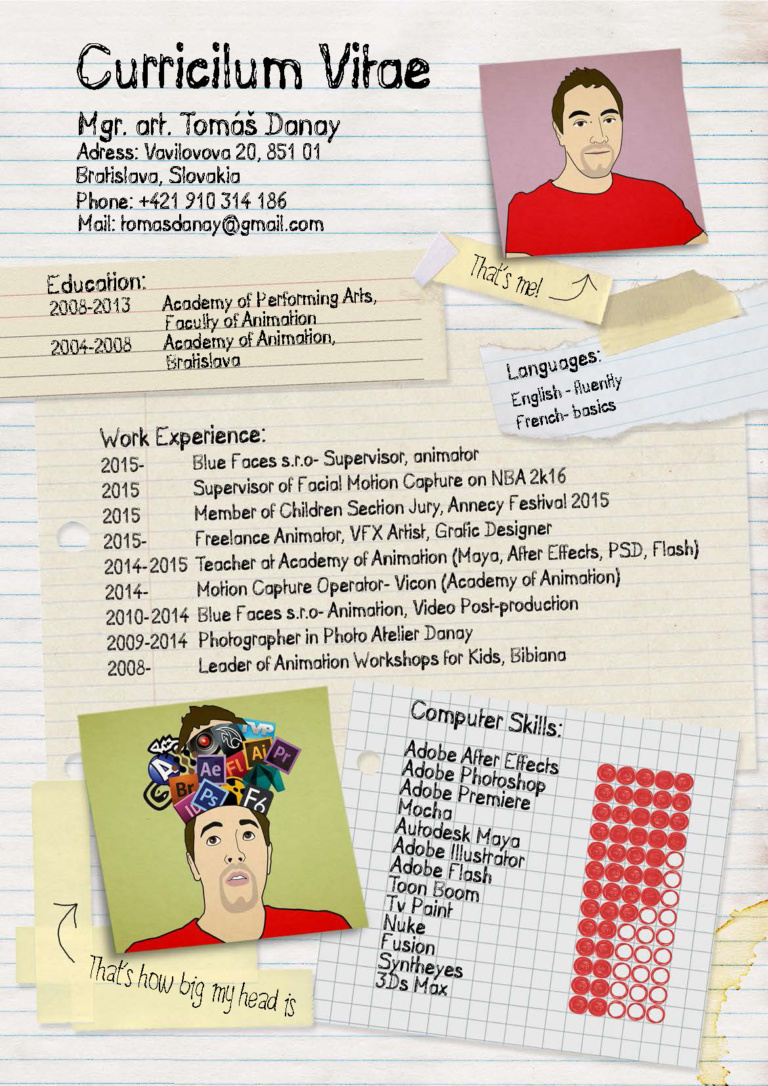 Curricilum Vitae
Mgr. art. Tomáš Danay
Adress: Vavilovova 20, 851 01
Bratislava, Slovakia
Phone: +421 910 314 186
Mail: tomasdanay@gmail.com
That's me!
Education:
2008-2013 Academy of Performing Arts,
Faculty of Animation
2004-2008 Academy of Animation,
Bratislava
Languages:
English - fluently
French- basics
Work Experience:
2015- Blue Faces s.r.o- Supervisor, animator
2015 Supervisor of Facial Motion Capture on NBA 2k16
2015 Member of Children Section Jury, Annecy Festival 2015
2015- Freelance Animator, VFX Artist, Grafic Designer
2014-2015 Teacher at Academy of Animation (Maya, After Effects, PSD, Flash)
2014- Motion Capture Operator- Vicon (Academy of Animation)
2010-2014 Blue Faces s.r.o- Animation, Video Post-production
2009-2014 Photographer in Photo Atelier Danay
2008- Leader of Animation Workshops for Kids, Bibiana
TVP
Ae Fl Ai Pr
Br Ps F6
That's how big my head is
Computer Skills:
Adobe After Effects
Adobe Photoshop
Adobe Premiere
Mocha
Autodesk Maya
Adobe Illustrator
Adobe Flash
Toon Boom
Tv Paint
Nuke
Fusion
Syntheyes
3Ds Max